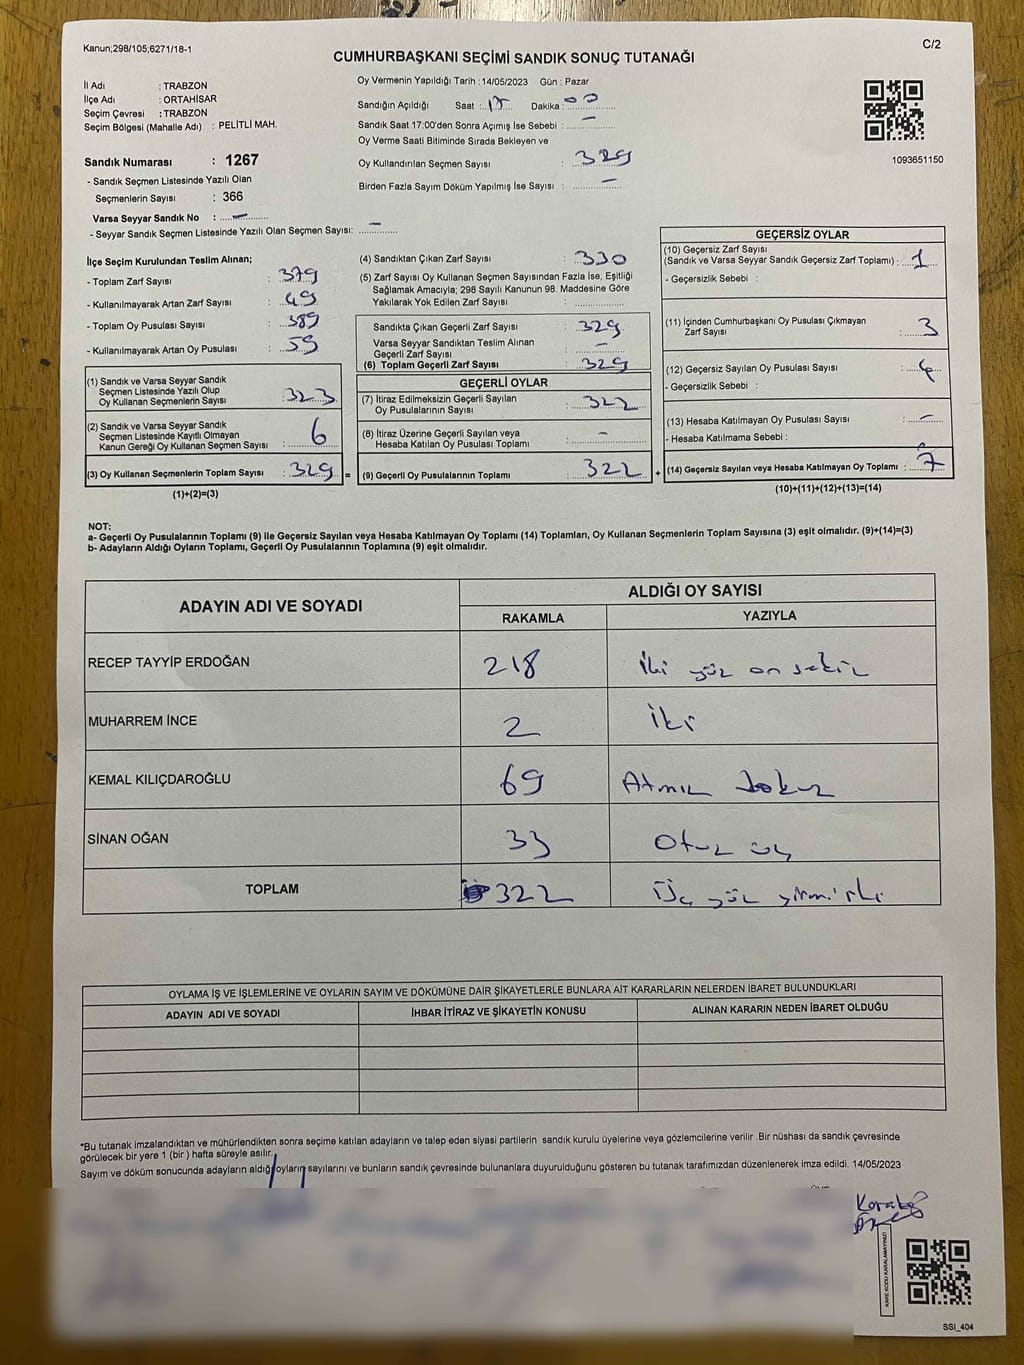 Kanun;298/105;6271/18-1
C/2
CUMHURBAŞKANI SEÇİMİ SANDIK SONUÇ TUTANAĞI
İl Adı : TRABZON
İlçe Adı : ORTAHİSAR
Seçim Çevresi : TRABZON
Seçim Bölgesi (Mahalle Adı) : PELİTLİ MAH.
Sandık Numarası : 1267
- Sandık Seçmen Listesinde Yazılı Olan
Seçmenlerin Sayısı : 366
Varsa Seyyar Sandık No : –
- Seyyar Sandık Seçmen Listesinde Yazılı Olan Seçmen Sayısı: –
Oy Vermenin Yapıldığı Tarih : 14/05/2023 Gün : Pazar
Sandığın Açıldığı Saat : 17 Dakika : 00
Sandık Saat 17:00'den Sonra Açımış İse Sebebi : –
Oy Verme Saati Bitiminde Sırada Bekleyen ve
Oy Kullandırılan Seçmen Sayısı : 329
Birden Fazla Sayım Döküm Yapılmış İse Sayısı : –
1093651150
İlçe Seçim Kurulundan Teslim Alınan;
- Toplam Zarf Sayısı : 379
- Kullanılmayarak Artan Zarf Sayısı : 49
- Toplam Oy Pusulası Sayısı : 389
- Kullanılmayarak Artan Oy Pusulası : 59
(1) Sandık ve Varsa Seyyar Sandık
Seçmen Listesinde Yazılı Olup
Oy Kullanan Seçmenlerin Sayısı : 323
(2) Sandık ve Varsa Seyyar Sandık
Seçmen Listesinde Kayıtlı Olmayan
Kanun Gereği Oy Kullanan Seçmen Sayısı : 6
(3) Oy Kullanan Seçmenlerin Toplam Sayısı : 329 =
(1)+(2)=(3)
(4) Sandıktan Çıkan Zarf Sayısı : 330
(5) Zarf Sayısı Oy Kullanan Seçmen Sayısından Fazla İse, Eşitliği
Sağlamak Amacıyla; 298 Sayılı Kanunun 98. Maddesine Göre
Yakılarak Yok Edilen Zarf Sayısı :
Sandıkta Çıkan Geçerli Zarf Sayısı : 329
Varsa Seyyar Sandıktan Teslim Alınan
Geçerli Zarf Sayısı : –
(6) Toplam Geçerli Zarf Sayısı : 329
GEÇERLİ OYLAR
(7) İtiraz Edilmeksizin Geçerli Sayılan
Oy Pusulalarının Sayısı : 322
(8) İtiraz Üzerine Geçerli Sayılan veya
Hesaba Katılan Oy Pusulası Toplamı : –
(9) Geçerli Oy Pusulalarının Toplamı : 322 +
GEÇERSİZ OYLAR
(10) Geçersiz Zarf Sayısı
(Sandık ve Varsa Seyyar Sandık Geçersiz Zarf Toplamı) : 1
- Geçersizlik Sebebi :
(11) İçinden Cumhurbaşkanı Oy Pusulası Çıkmayan
Zarf Sayısı : 3
(12) Geçersiz Sayılan Oy Pusulası Sayısı : 4
- Geçersizlik Sebebi :
(13) Hesaba Katılmayan Oy Pusulası Sayısı : –
- Hesaba Katılmama Sebebi :
(14) Geçersiz Sayılan veya Hesaba Katılmayan Oy Toplamı : 7
(10)+(11)+(12)+(13)=(14)
NOT:
a- Geçerli Oy Pusulalarının Toplamı (9) ile Geçersiz Sayılan veya Hesaba Katılmayan Oy Toplamı (14) Toplamları, Oy Kullanan Seçmenlerin Toplam Sayısına (3) eşit olmalıdır. (9)+(14)=(3)
b- Adayların Aldığı Oyların Toplamı, Geçerli Oy Pusulalarının Toplamına (9) eşit olmalıdır.
ADAYIN ADI VE SOYADI
ALDIĞI OY SAYISI
RAKAMLA YAZIYLA
RECEP TAYYİP ERDOĞAN 218 İki yüz on sekiz
MUHARREM İNCE 2 İki
KEMAL KILIÇDAROĞLU 69 Atmız Dokuz
SİNAN OĞAN 33 Otuz üç
TOPLAM 322 Üç yüz yirmi iki
OYLAMA İŞ VE İŞLEMLERİNE VE OYLARIN SAYIM VE DÖKÜMÜNE DAİR ŞİKAYETLERLE BUNLARA AİT KARARLARIN NELERDEN İBARET BULUNDUKLARI
ADAYIN ADI VE SOYADI İHBAR İTİRAZ VE ŞİKAYETİN KONUSU ALINAN KARARIN NEDEN İBARET OLDUĞU
*Bu tutanak imzalandıktan ve mühürlendikten sonra seçime katılan adayların ve talep eden siyasi partilerin sandık kurulu üyelerine veya gözlemcilerine verilir .Bir nüshası da sandık çevresinde
görülecek bir yere 1 (bir ) hafta süreyle asılır.
Sayım ve döküm sonucunda adayların aldığı oyların sayılarını ve bunların sandık çevresinde bulunanlara duyurulduğunu gösteren bu tutanak tarafımızdan düzenlenerek imza edildi. 14/05/2023
KARE KODU KARALAMAYINIZ!
SSI_404